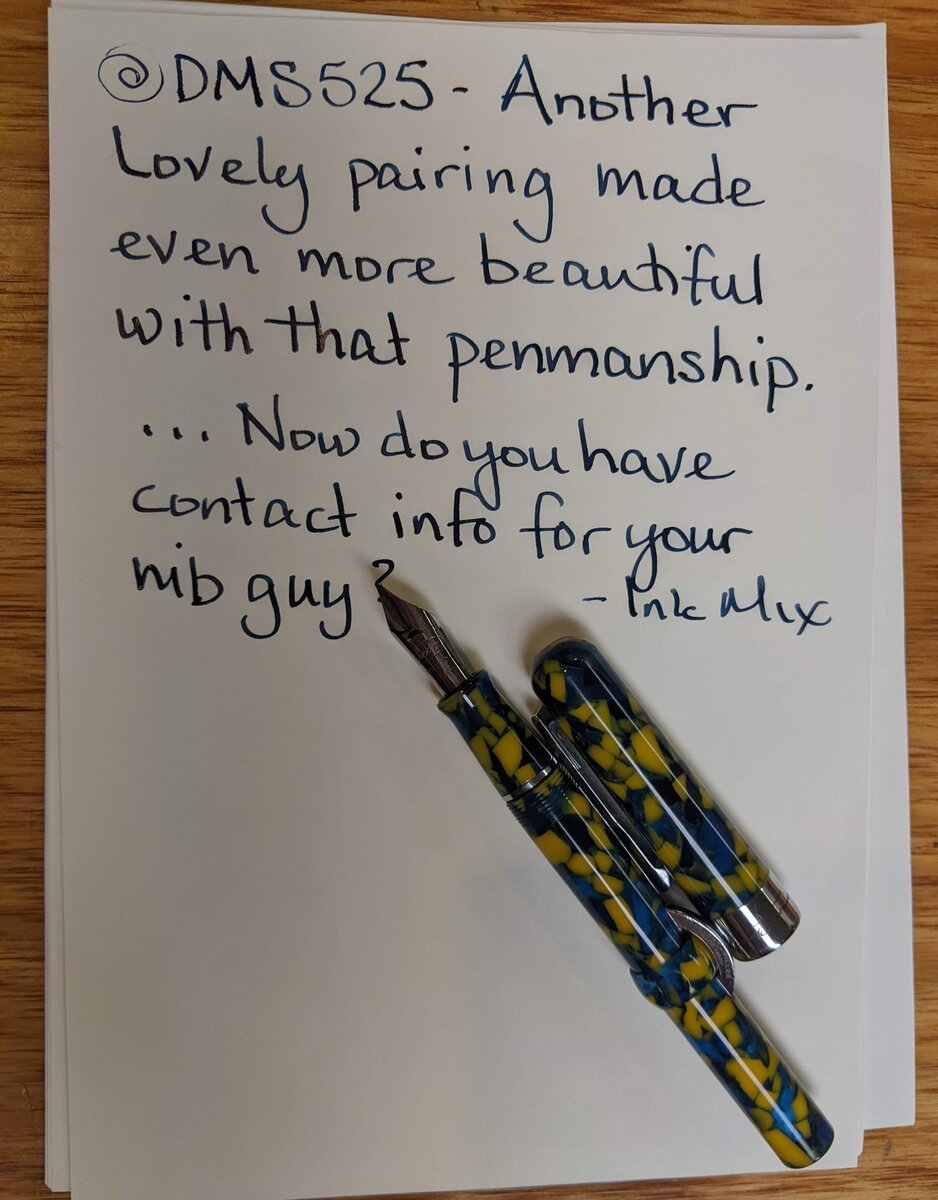 @DMS525 - Another
Lovely pairing made
even more beautiful
with that penmanship.
... Now do you have
contact info for your
nib guy?
- Ink Mix